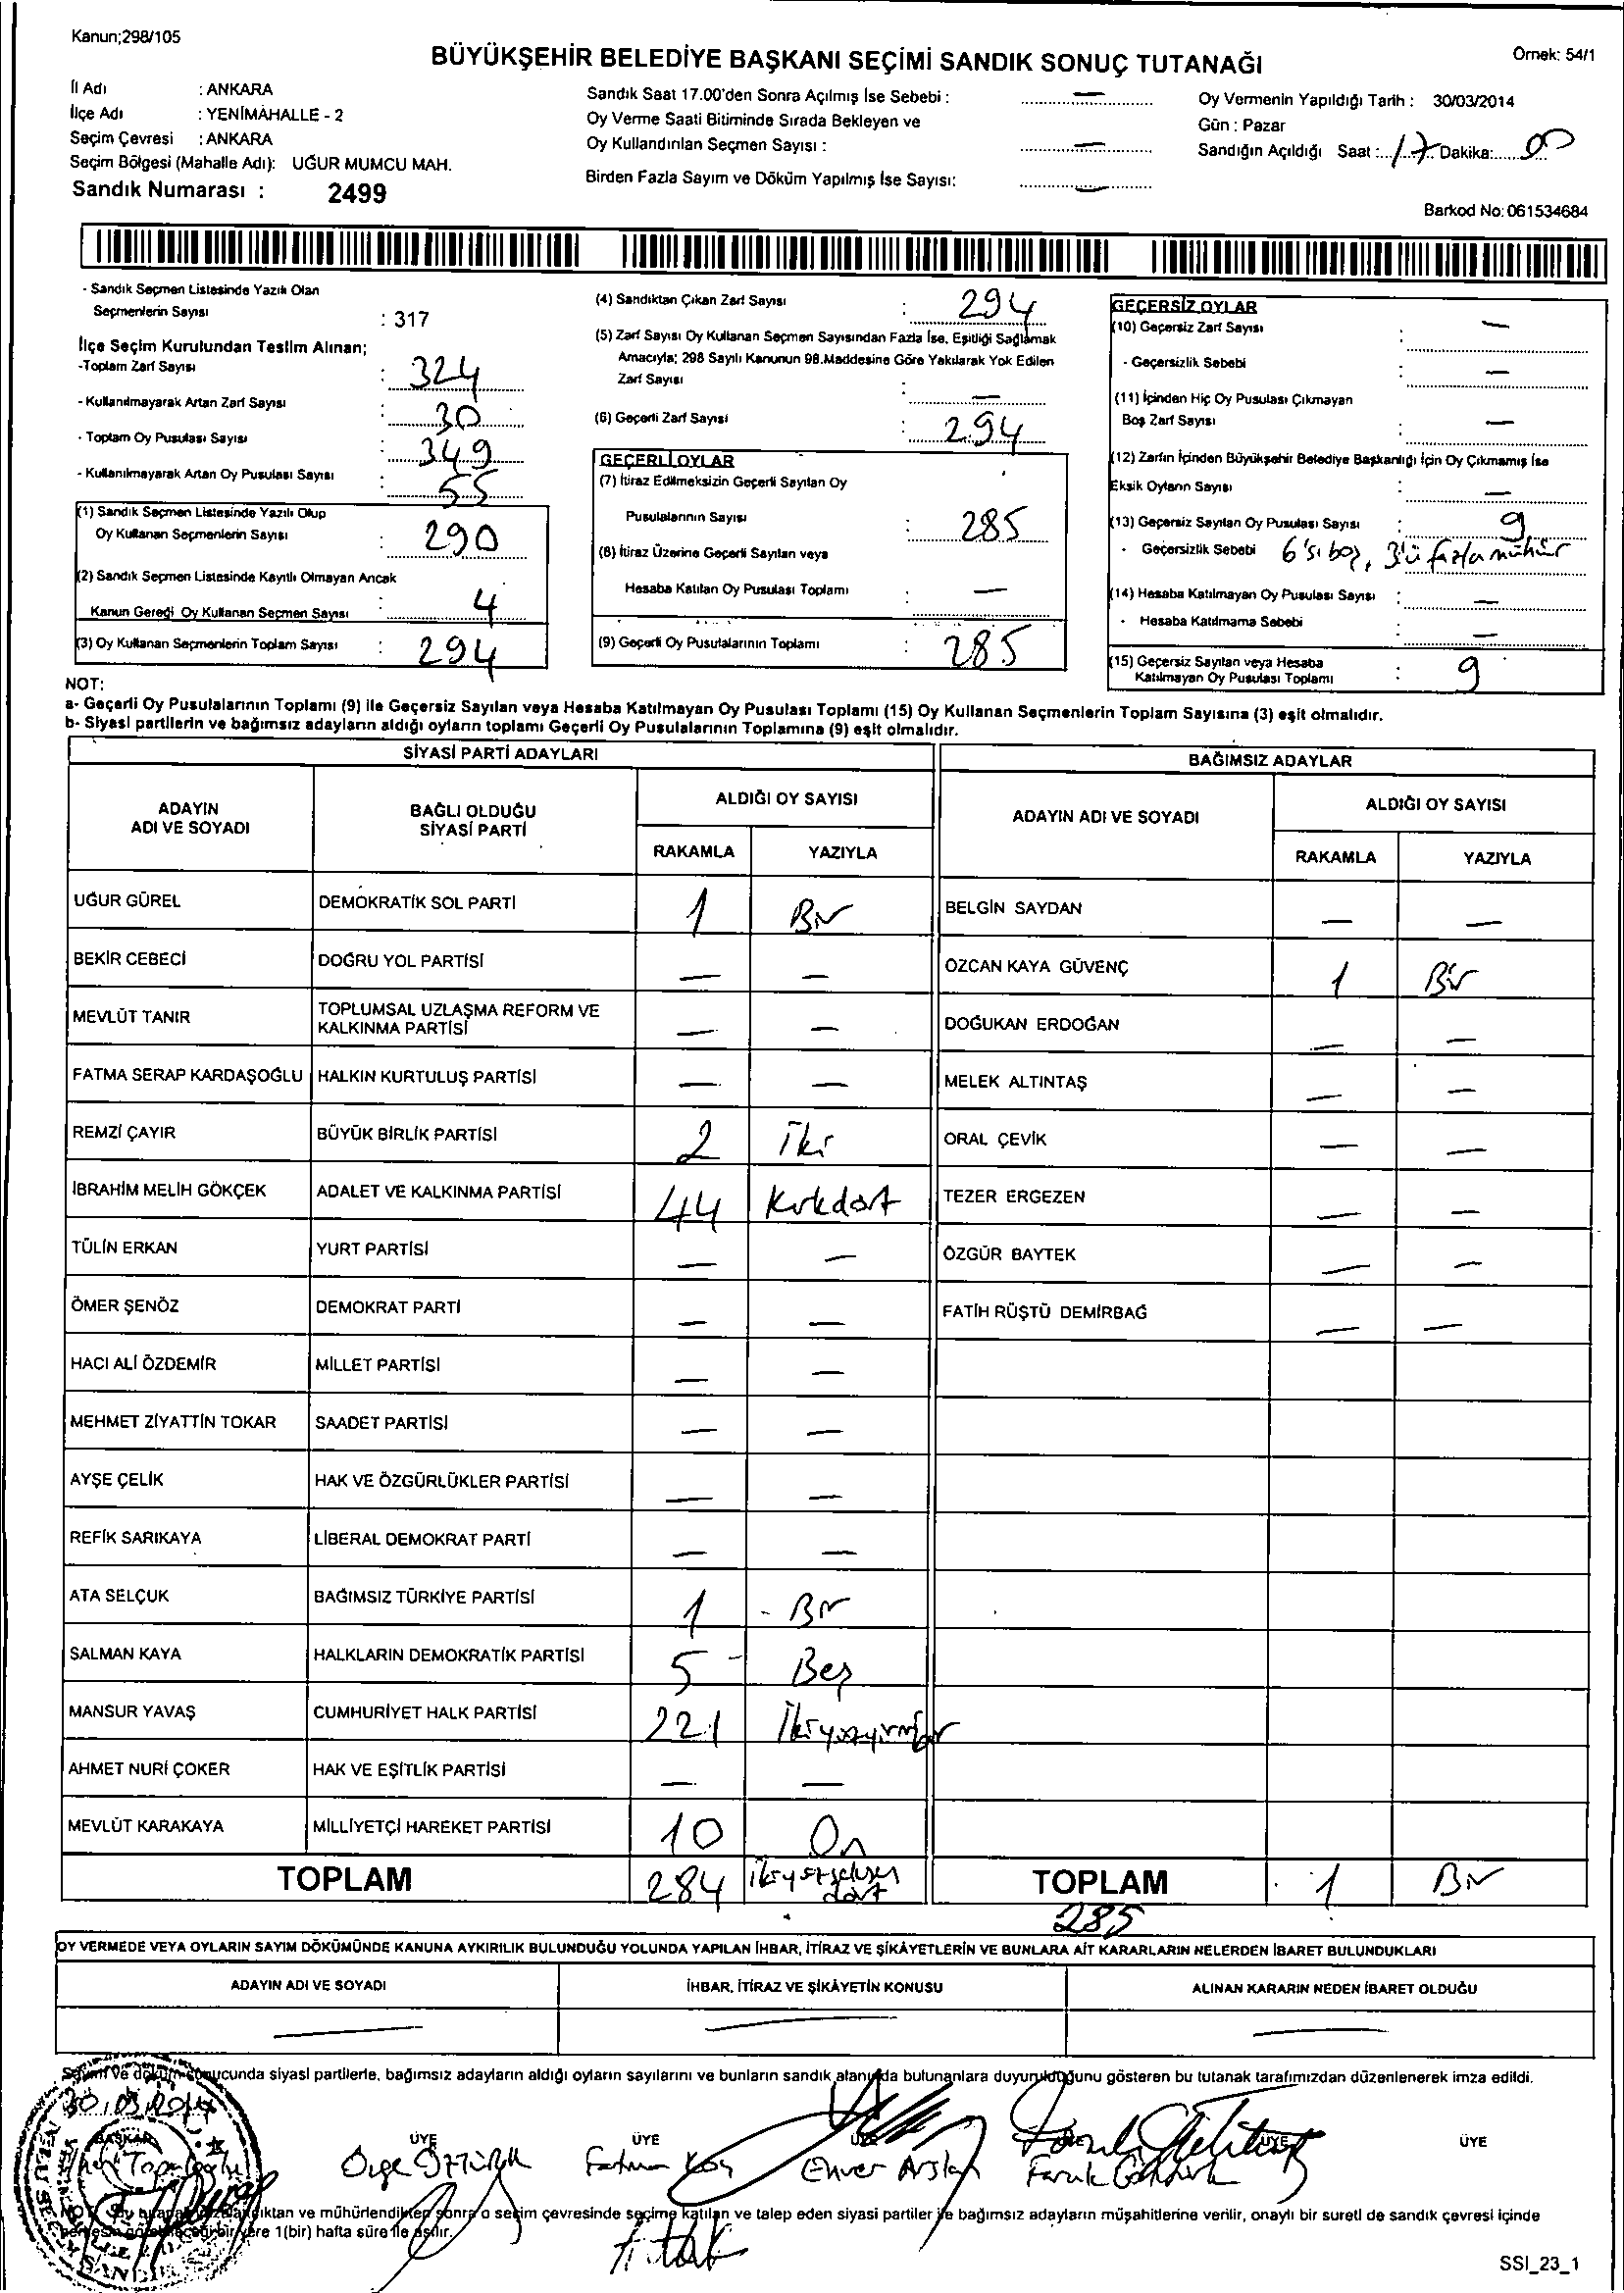 Kanun;298/105
Örnek: 54/1
BÜYÜKŞEHİR BELEDİYE BAŞKANI SEÇİMİ SANDIK SONUÇ TUTANAĞI
İl Adı : ANKARA
İlçe Adı : YENİMAHALLE - 2
Seçim Çevresi : ANKARA
Seçim Bölgesi (Mahalle Adı): UĞUR MUMCU MAH.
Sandık Numarası : 2499
Sandık Saat 17.00'den Sonra Açılmış İse Sebebi : —
Oy Verme Saati Bitiminde Sırada Bekleyen ve
Oy Kullandırılan Seçmen Sayısı : —
Birden Fazla Sayım ve Döküm Yapılmış İse Sayısı: —
Oy Vermenin Yapıldığı Tarih : 30/03/2014
Gün : Pazar
Sandığın Açıldığı Saat : 17 Dakika: 00
Barkod No: 061534684
- Sandık Seçmen Listesinde Yazılı Olan
Seçmenlerin Sayısı : 317
İlçe Seçim Kurulundan Teslim Alınan;
-Toplam Zarf Sayısı : 324
- Kullanılmayarak Artan Zarf Sayısı : 30
- Toplam Oy Pusulası Sayısı : 349
- Kullanılmayarak Artan Oy Pusulası Sayısı : 55
(1) Sandık Seçmen Listesinde Yazılı Olup
Oy Kullanan Seçmenlerin Sayısı : 290
(2) Sandık Seçmen Listesinde Kayıtlı Olmayan Ancak
Kanun Gereği Oy Kullanan Seçmen Sayısı : 4
(3) Oy Kullanan Seçmenlerin Toplam Sayısı : 294
(4) Sandıktan Çıkan Zarf Sayısı : 294
(5) Zarf Sayısı Oy Kullanan Seçmen Sayısından Fazla İse, Eşitliği Sağlamak
Amacıyla; 298 Sayılı Kanunun 98.Maddesine Göre Yakılarak Yok Edilen
Zarf Sayısı : —
(6) Geçerli Zarf Sayısı : 294
GEÇERLİ OYLAR
(7) İtiraz Edilmeksizin Geçerli Sayılan Oy
Pusulalarının Sayısı : 285
(8) İtiraz Üzerine Geçerli Sayılan veya
Hesaba Katılan Oy Pusulası Toplamı : —
(9) Geçerli Oy Pusulalarının Toplamı : 285
GEÇERSİZ OYLAR
(10) Geçersiz Zarf Sayısı : —
- Geçersizlik Sebebi : —
(11) İçinden Hiç Oy Pusulası Çıkmayan
Boş Zarf Sayısı : —
(12) Zarfın İçinden Büyükşehir Belediye Başkanlığı İçin Oy Çıkmamış İse
Eksik Oyların Sayısı : —
(13) Geçersiz Sayılan Oy Pusulası Sayısı : 9
- Geçersizlik Sebebi 6'sı boş, 3'ü fazla mühür
(14) Hesaba Katılmayan Oy Pusulası Sayısı : —
- Hesaba Katılmama Sebebi : —
(15) Geçersiz Sayılan veya Hesaba
Katılmayan Oy Pusulası Toplamı : 9
NOT:
a- Geçerli Oy Pusulalarının Toplamı (9) ile Geçersiz Sayılan veya Hesaba Katılmayan Oy Pusulası Toplamı (15) Oy Kullanan Seçmenlerin Toplam Sayısına (3) eşit olmalıdır.
b- Siyasi partilerin ve bağımsız adayların aldığı oyların toplamı Geçerli Oy Pusulalarının Toplamına (9) eşit olmalıdır.
SİYASİ PARTİ ADAYLARI
ADAYIN ADI VE SOYADI
BAĞLI OLDUĞU SİYASİ PARTİ
ALDIĞI OY SAYISI
RAKAMLA YAZIYLA
UĞUR GÜREL DEMOKRATİK SOL PARTİ 1 Bir
BEKİR CEBECİ DOĞRU YOL PARTİSİ — —
MEVLÜT TANIR TOPLUMSAL UZLAŞMA REFORM VE KALKINMA PARTİSİ — —
FATMA SERAP KARDAŞOĞLU HALKIN KURTULUŞ PARTİSİ — —
REMZİ ÇAYIR BÜYÜK BİRLİK PARTİSİ 2 İki
İBRAHİM MELİH GÖKÇEK ADALET VE KALKINMA PARTİSİ 44 Kırkdört
TÜLİN ERKAN YURT PARTİSİ — —
ÖMER ŞENÖZ DEMOKRAT PARTİ — —
HACI ALİ ÖZDEMİR MİLLET PARTİSİ — —
MEHMET ZİYATTİN TOKAR SAADET PARTİSİ — —
AYŞE ÇELİK HAK VE ÖZGÜRLÜKLER PARTİSİ — —
REFİK SARIKAYA LİBERAL DEMOKRAT PARTİ — —
ATA SELÇUK BAĞIMSIZ TÜRKİYE PARTİSİ 1 - Bir
SALMAN KAYA HALKLARIN DEMOKRATİK PARTİSİ 5 - Beş
MANSUR YAVAŞ CUMHURİYET HALK PARTİSİ 221 İkiyüzyirmibir
AHMET NURİ ÇOKER HAK VE EŞİTLİK PARTİSİ — —
MEVLÜT KARAKAYA MİLLİYETÇİ HAREKET PARTİSİ 10 On
TOPLAM 284 ikiyüzseksendört
BAĞIMSIZ ADAYLAR
ADAYIN ADI VE SOYADI
ALDIĞI OY SAYISI
RAKAMLA YAZIYLA
BELGİN SAYDAN — —
ÖZCAN KAYA GÜVENÇ 1 Bir
DOĞUKAN ERDOĞAN — —
MELEK ALTINTAŞ — —
ORAL ÇEVİK — —
TEZER ERGEZEN — —
ÖZGÜR BAYTEK — —
FATİH RÜŞTÜ DEMİRBAĞ — —
TOPLAM 1 Bir
285
OY VERMEDE VEYA OYLARIN SAYIM DÖKÜMÜNDE KANUNA AYKIRILIK BULUNDUĞU YOLUNDA YAPILAN İHBAR, İTİRAZ VE ŞİKÂYETLERİN VE BUNLARA AİT KARARLARIN NELERDEN İBARET BULUNDUKLARI
ADAYIN ADI VE SOYADI İHBAR, İTİRAZ VE ŞİKÂYETİN KONUSU ALINAN KARARIN NEDEN İBARET OLDUĞU
— — —
Sayım ve döküm sonucunda siyasi partilerle, bağımsız adayların aldığı oyların sayılarını ve bunların sandık alanında bulunanlara duyurulduğunu gösteren bu tutanak tarafımızdan düzenlenerek imza edildi.
30.03.2014
BAŞKAN ÜYE ÜYE ÜYE ÜYE ÜYE
Özge Öztürk Fatma Koç Enver Arslan Faruk
ve mühürlendikten sonra o seçim çevresinde seçime katılan ve talep eden siyasi partiler ile bağımsız adayların müşahitlerine verilir, onaylı bir sureti de sandık çevresi içinde
herkesin görebileceği bir yere 1(bir) hafta süre ile asılır.
SSI_23_1